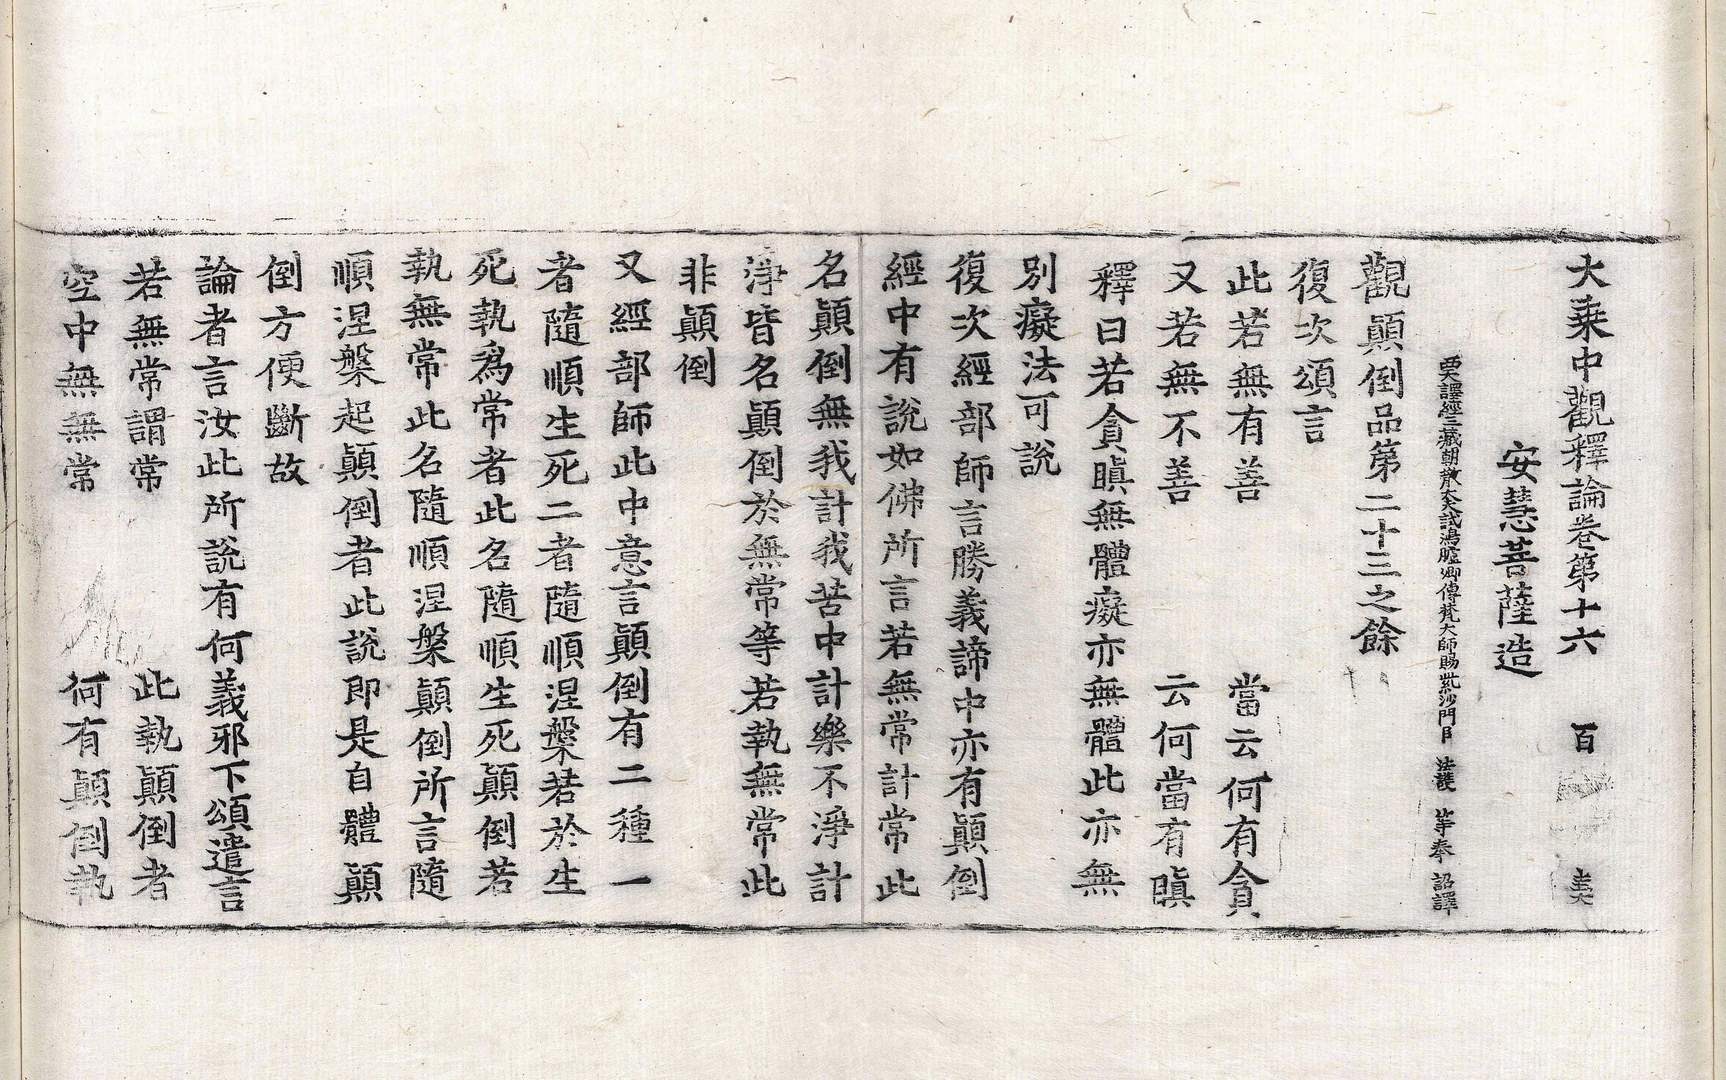 大乘中觀釋論卷第十六 百
安慧菩薩造
譯經三藏朝散大夫試鴻臚卿傳梵大師賜紫沙門臣 法護 等奉 詔譯
觀顚倒品第二十三之餘
復次頌言
此若無有善 當云何有貪
又若無不善 云何當有瞋
釋曰若貪瞋無體癡亦無體此亦無
別癡法可說
復次經部師言勝義諦中亦有顚倒
經中有說如佛所言若無常計常此
名顚倒無我計我苦中計樂不淨計
淨皆名顚倒於無常等若執無常此
非顚倒
又經部師此中意言顚倒有二種一
者隨順生死二者隨順涅槃若於生
死執爲常者此名隨順生死顚倒若
執無常此名隨順涅槃顚倒所言隨
順涅槃起顚倒者此說即是自體顚
倒方便斷故
論者言汝此所說有何義邪下頌遣言
若無常謂常 此執顚倒者
空中無無常 何有顚倒執